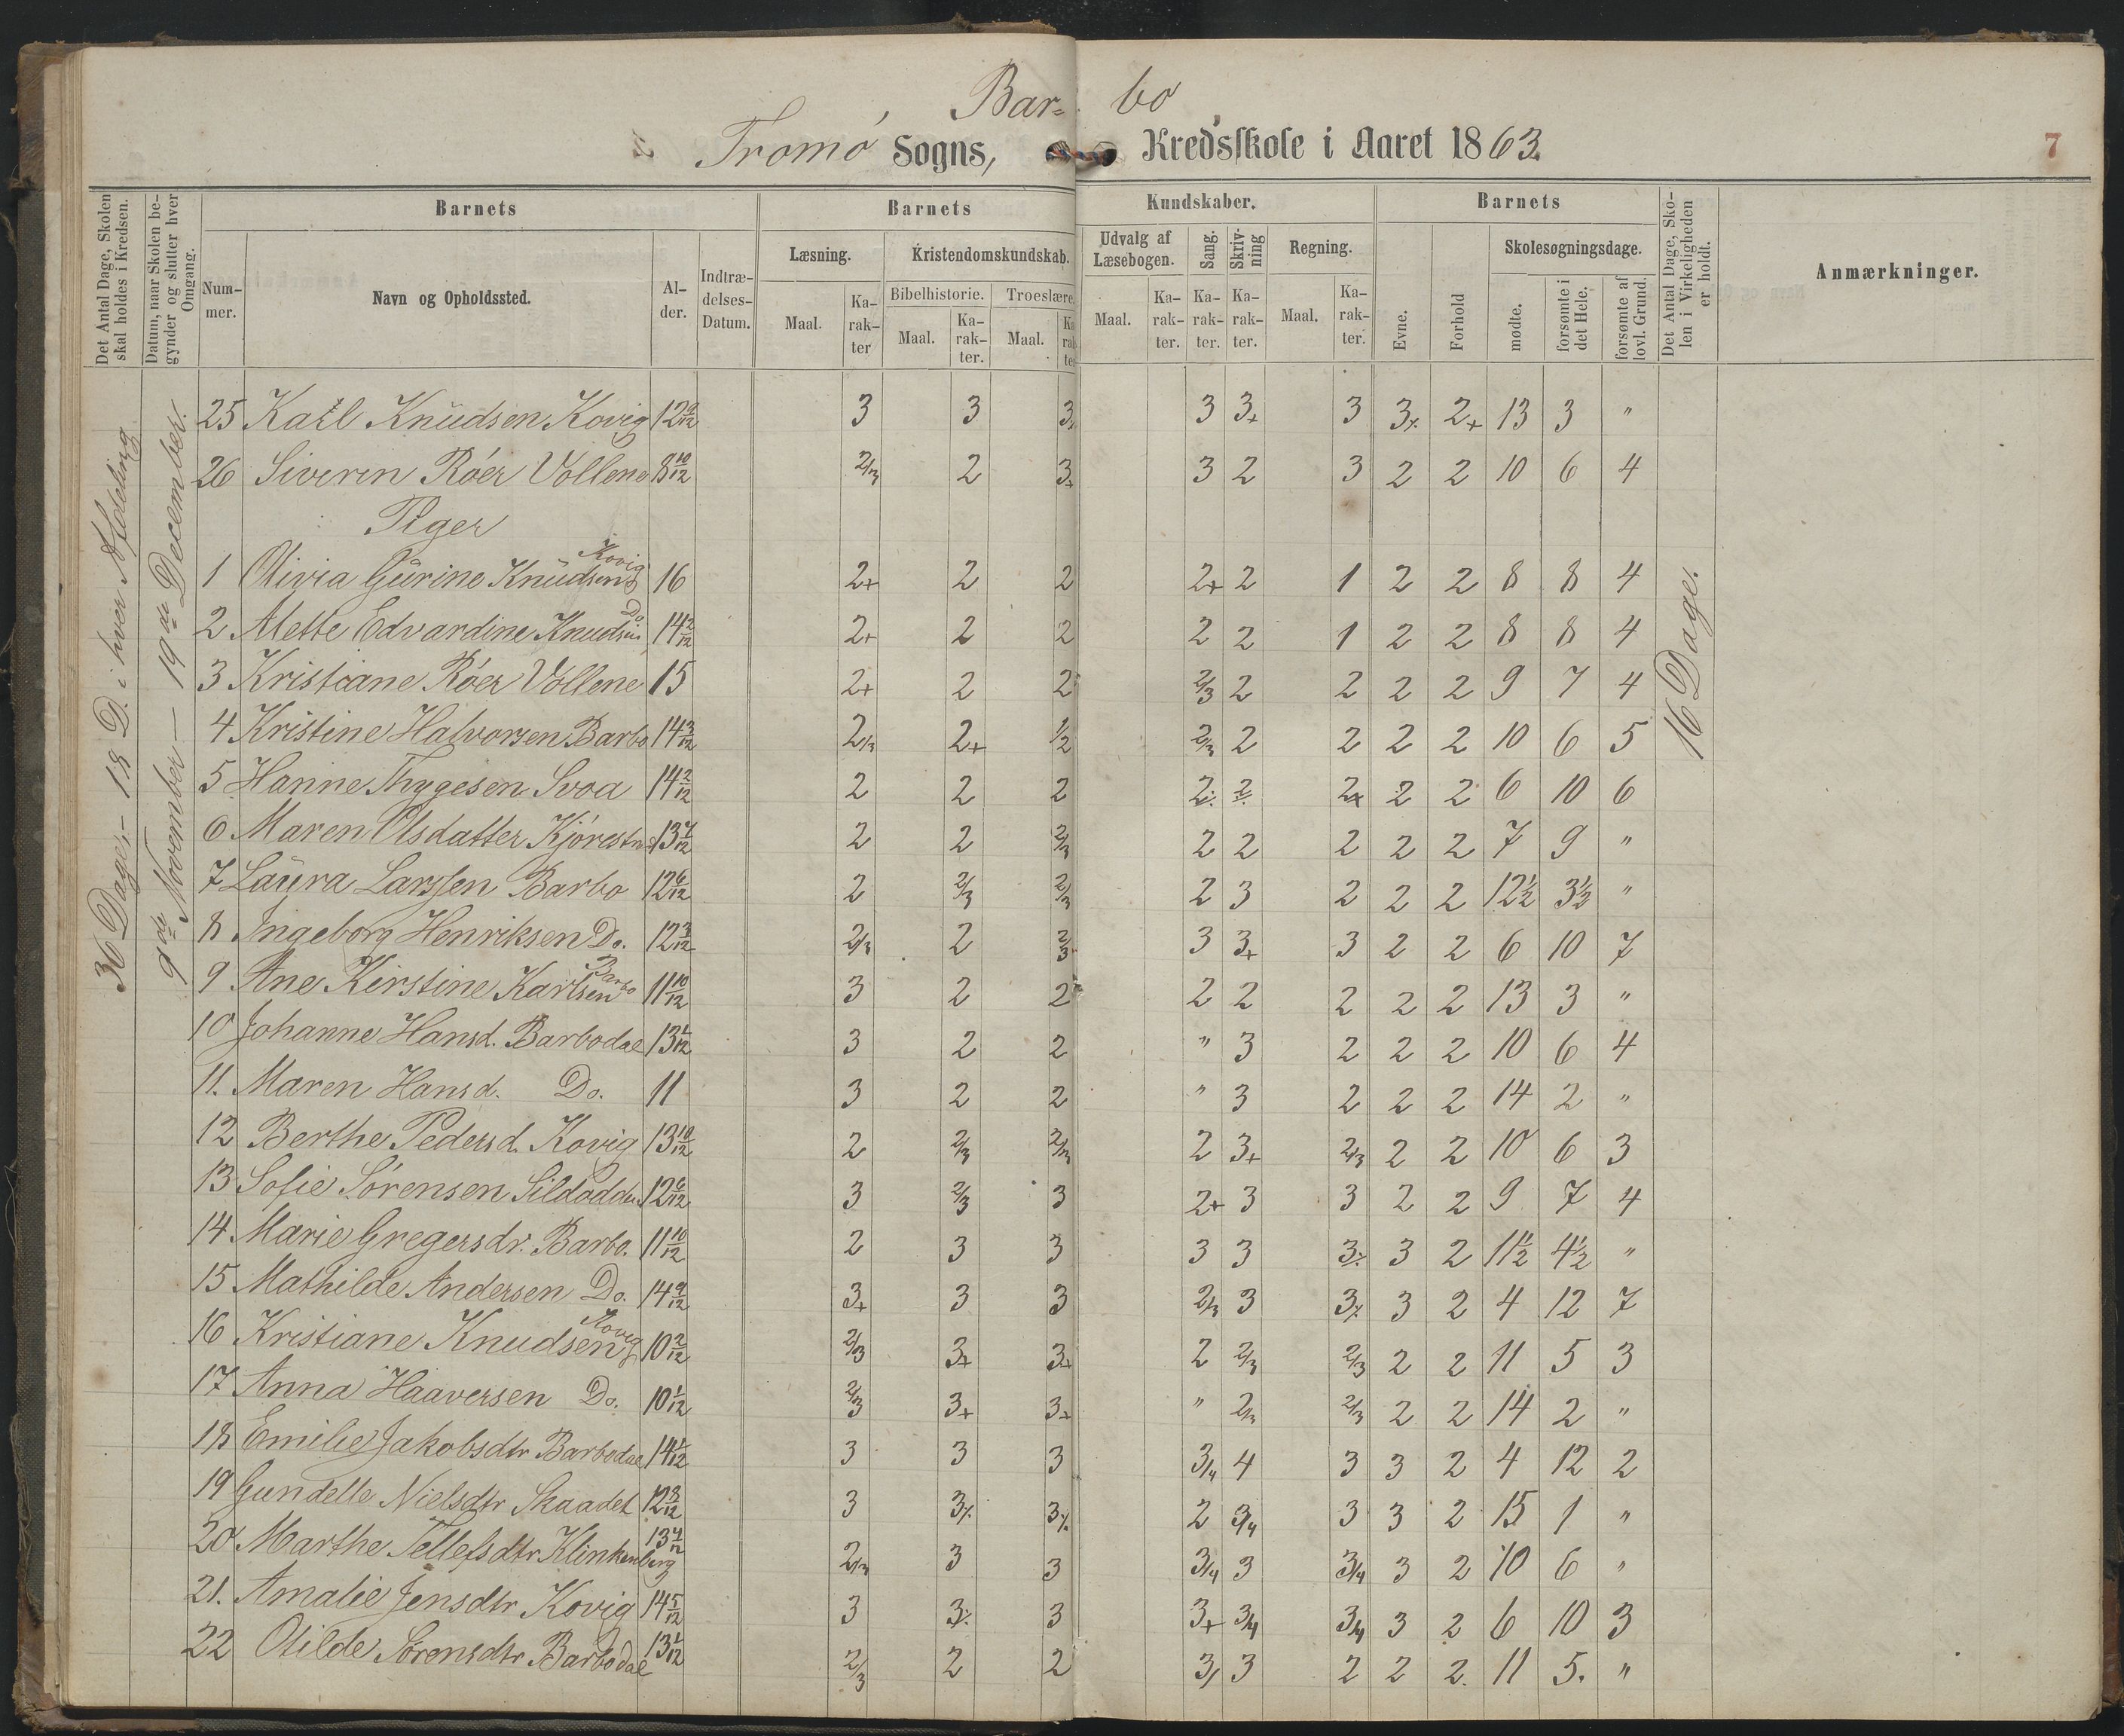 Bar- bo
Tromø Sogns, Kredsskole i Aaret 1863.
7
Det Antal Dage, Skolen skal holdes i Kredsen.
Datum, naar Skolen begynder og slutter hver Omgang.
Barnets
Barnets
Kundskaber.
Barnets
Det Antal Dage, Skolen i Virkeligheden er holdt.
Anmærkninger.
Nummer.
Navn og Opholdssted.
Alder.
Indtrædelses-Datum.
Læsning.
Kristendomskundskab.
Udvalg af Læsebogen.
Sang.
Skrivning
Regning.
Evne.
Forhold
Skolesøgningsdage.
Bibelhistorie.
Troeslære.
mødte.
forsømte i det Hele.
forsømte af lovl. Grund.
Maal. Karakter Maal. Karakter. Maal. Karakter Maal. Karakter. Karakter. Karakter. Maal. Karakter.
36 Dage, - 18 D. i hver Afdeling
9de November - 19de December.
16 Dage.
25 Karl Knudsen Kovig 12 9/12 3 3 3 3 3+ 3 3% 2+ 13 3 "
26 Siverin Röer Vollene 8 10/12 2/3 2 3+ 3 2 3 2 2 10 6 4
Piger
1 Olivia Gurine Knudsen Kovig 16 2+ 2 2 2+ 2 1 2 2 8 8 4
2 Mette Edvardine Knudsen Do 14 2/12 2+ 2 2 2 2 1 2 2 8 8 4
3 Kristiane Röer Vollene 15 2+ 2 2 2/3 2 2 2 2 9 7 4
4 Kristine Halvorsen Barbo 14 3/12 2/3 2+ 1/2 2/3 2 2 2 2 10 6 5
5 Hanne Thygesen Svoa 14 2/12 2 2 2 2% 2 2+ 2 2 6 10 6
6 Maren Olsdatter 13 7/12 2 2 2/3 2 2 2 2 2 7 9 "
7 Laura Larssen Barbo 12 6/12 2 2/3 2/3 2 3 2 2 2 12½ 3½ "
8 Ingeborg Henriksen Do. 12 3/12 2/3 2 2/3 3 3+ 3 2 2 6 10 7
9 Ane Kirstine Karlsen Barbo 11 10/12 3 2 2 2 2 2 2 2 13 3 "
10 Johanne Hansd. Barbodal 13 1/12 3 2 2 " 3 2 2 2 10 6 4
11. Maren Hansd. Do. 11 3 2 2 " 3 2 2 2 14 2 "
12 Berthe Pedersd. Kovig 13 10/12 2 2/3 2/3 2 3+ 2/3 2 2 10 6 3
13 Sofie Sørensen Sildodden 12 6/12 3 2/3 3 2+ 3 3 2 2 9 7 4
14 Marie Gregersdr. Barbo. 11 10/12 2 3 3 3 3 3% 3 2 11½ 4½ "
15 Mathilde Andersen Do. 14 9/12 3+ 3 3 2/3 3 3% 3 2 4 12 7
16 Kristiane Knudsen Kovig 10 2/12 2/3 3+ 3+ 2 2/3 2/3 2 2 11 5 3
17 Anna Haaversen Do. 10 1/12 2/3 3+ 3+ " 2/3 2/3 2 2 14 2 "
18 Emilie Jakobsdtr Barbodal 14 1/12 3 3 3 3/4 4 3 3 2 4 12 2
19 Gundelle Nielsdtr Skaadet 12 8/12 3 3% 3% 2 3/4 3 3 2 15 1 "
20 Marthe Tellefsdtr Klinkenberg 13 4/12 2/3 3 3 3/4 3 3/4 3 2 10 6 "
21. Amalie Jensdtr Kovig 14 5/12 3 3% 3 3+ 3/4 3/4 3 2 6 10 3
22 Otilde Sørensdtr Barbodal 13 1/12 2/3 2 2 3/ 3 2 2 2. 11 5. "